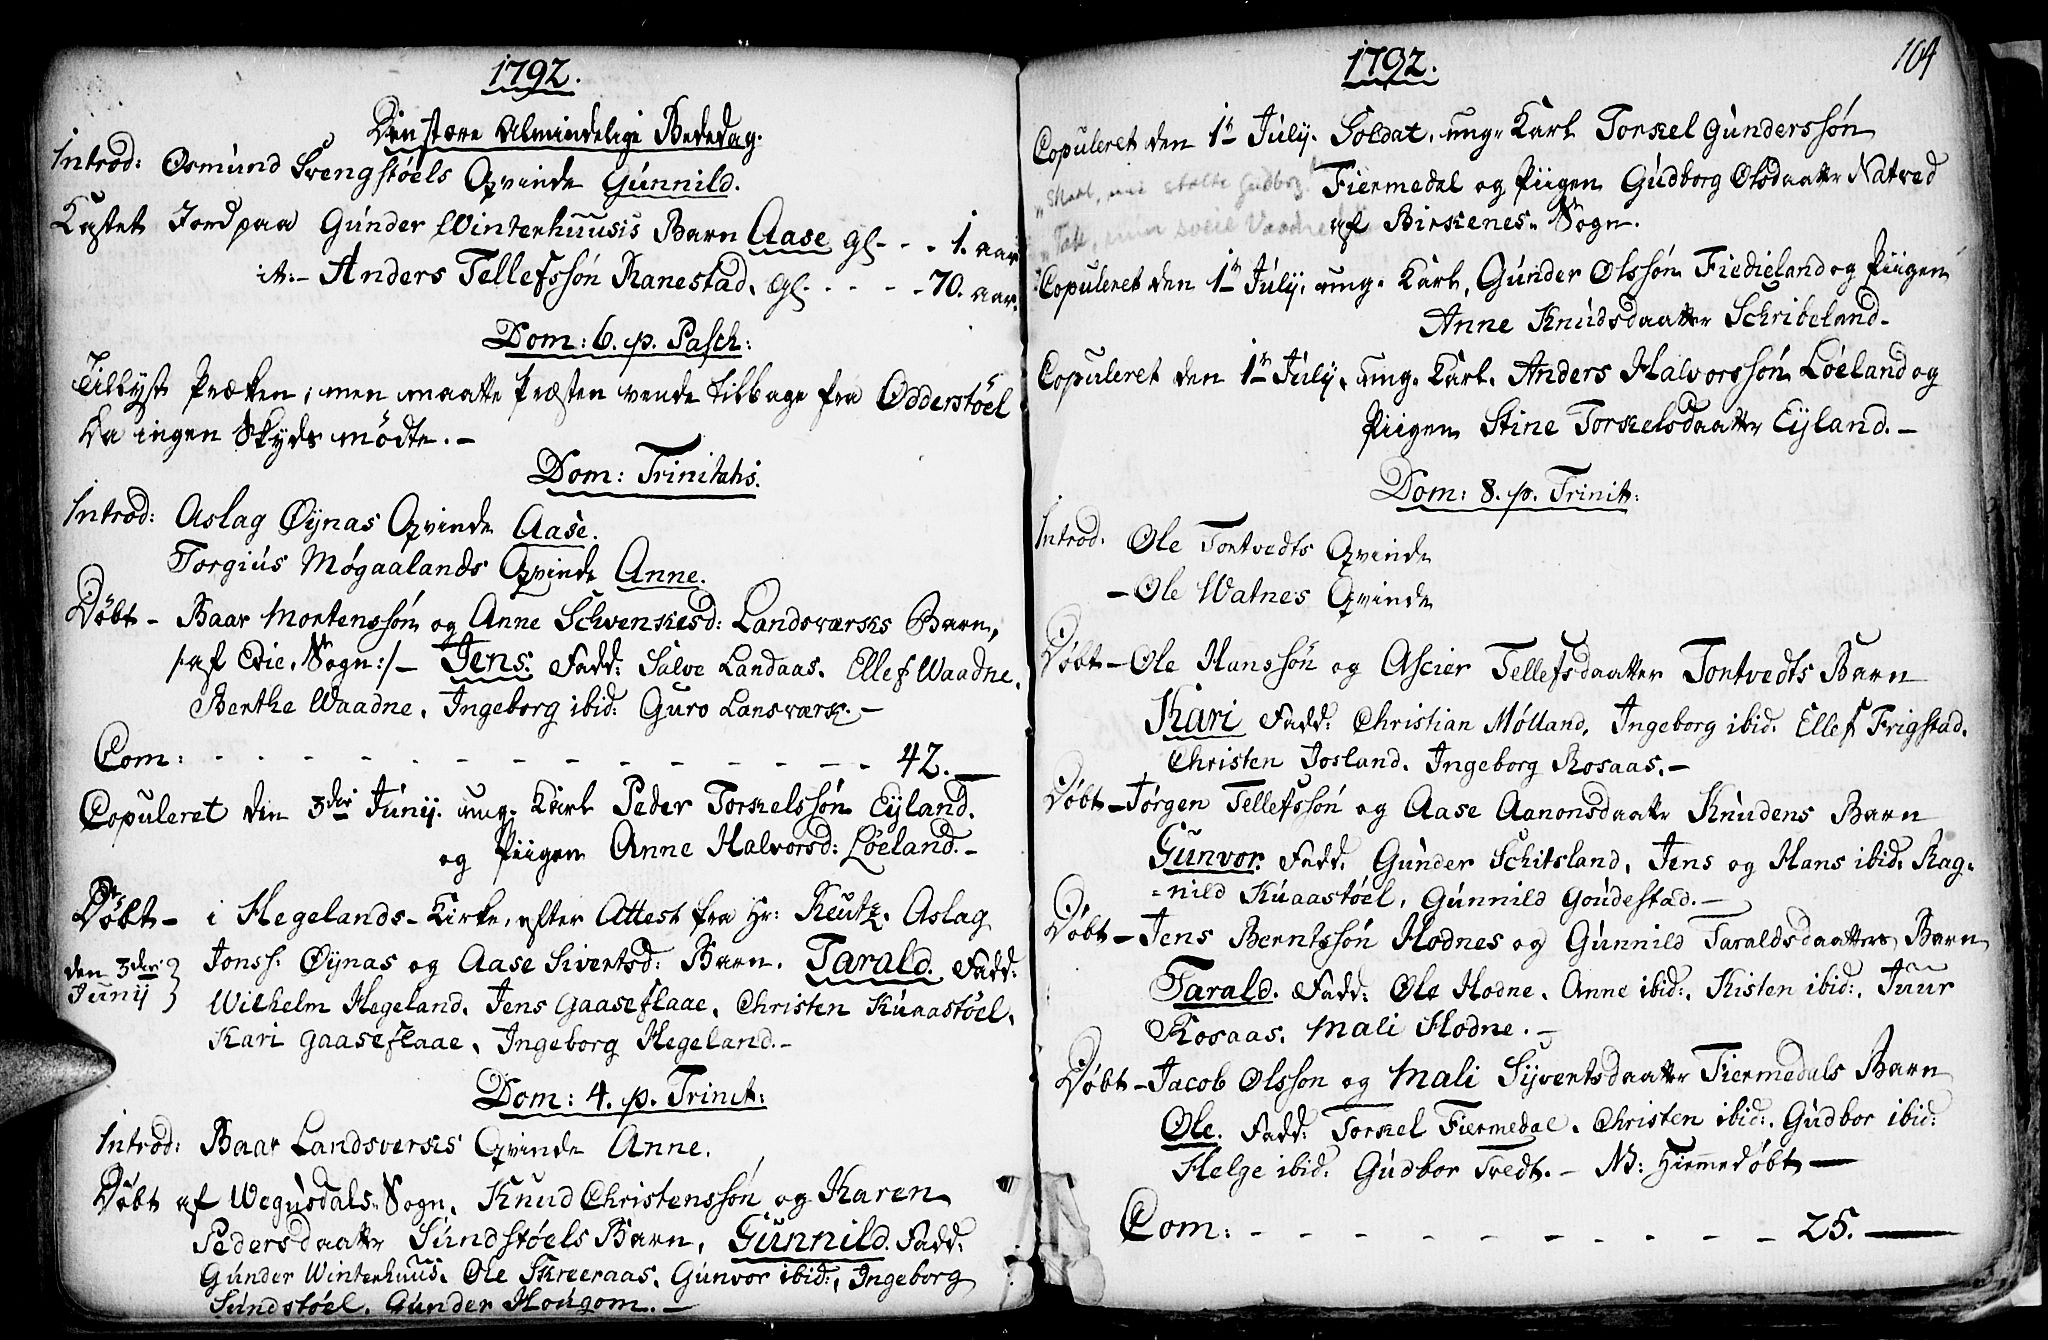 1792.
Den store Almindelige Bededag.
Introd: Osmund Svengstøels Qvinde Gunnild.
Kastet Jord paa Gunder Winterhuusis Barn Aase gl - - - 1. aar
it:- Anders Tellefssøn Ranestad. gl - - - - - 70. aar.
Dom: 6. p. Pasch:
Tillyst Præken; men maatte Præsten vende tilbage fra Odderstøel
da ingen Skyds mødte. -
Dom: Trinitatis.
Introd: Aslag Øynas Qvinde Aase.
Torgius Møgaalands Qvinde Anne.
Døbt - Baar Mortenssøn og Anne Schvenkesd: Landsværks Barn,
/: af Evie, Sogn :/ - Jens. Fadd: Salve Landaas. Ellef Waadne.
Berthe Waadne. Ingeborg ibid: Guro Lansværk. -
Com: - - - - - - - - - - - - - 42. -
Copuleret den 3die Junij. ung. Karl Peder Torkelssøn Eyland.
og Piigen Anne Halvorsd: Løeland. -
Døbt - i Hegelands - Kirke, efter Attest fra Hr: Keutz. Aslag
den 3die Junij } Jonss: Øynas og Aase Sivertsd: Barn. Tarald. Fadd:
Wilhelm Hegeland. Jens Gaaseflaae. Christen Kuaastøel.
Kari Gaaseflaae. Ingeborg Hegeland. -
Dom: 4. p. Trinit:
Introd: Baar Landsverks Qvinde Anne.
Døbt af Wegusdals - Sogn. Knud Christenssøn og Karen
Pedersdaatter Sundstøels Barn, Gunnild. Fadd:
Gunder Winterhuus. Ole Skreeraas. Gunvor ibid:, Ingeborg
Sundstøel. Gunder Hougom. -
1792.
104
Copuleret den 1te July. Soldat. ung. Karl Torkel Gunderssøn
Fiermedal og Piigen Gudborg Olsdaatter Natved
af Birkenes. Sogn.
Copuleret den 1te July. ung. Karl. Gunder Olssøn Fiedieland og Piigen
Anne Knudsdaatter Schribeland -
Copuleret den 1te July. ung. Karl. Anders Halvorssøn Løeland og
Piigen Stine Torkelsdaatter Eyland. -
Dom: 8. p. Trinit:
Introd. Ole Tontvedts Qvinde
- Ole Watnes Qvinde
Døbt - Ole Hanssøn og Ascier Tellefsdaatter Tontvedts Barn
Kari Fadd: Christian Mølland. Ingeborg ibid. Ellef Frigstad.
Christen Josland. Ingeborg Rosaas. -
Døbt - Jørgen Tellefssøn og Aase Aanonsdaatter Knudens Barn
Gunvor. Fadd. Gunder Schitsland. Jens og Hans ibid. Rag=
=nild Kuaastøel. Gunnild Goudestad. -
Døbt - Jens Berntssøn Hodnes og Gunnild Taraldsdaatters Barn
Tarald. Fadd: Ole Hodne. Anne ibid:. Kisten ibid:. Juur
Rosaas. Mali Hodne. -
Døbt - Jacob Olsson og Mali Syvertsdaatter Fiermedals Barn
Ole. Fadd: Torkel Fiermedal. Christen ibid:. Gudbor ibid:
Helge ibid: Gudbor Tvedt. - NB: Hiemmedøbt -
Com: - - - - - - - - - - 25. -